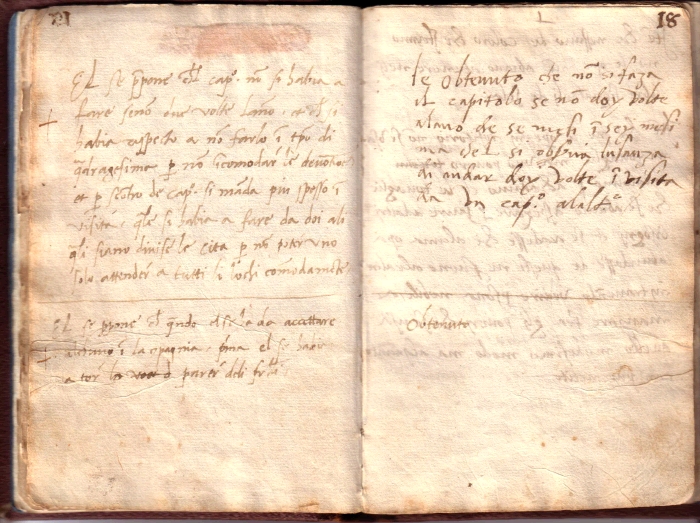 El se ppone ch'l cap.° nō si habia a
fare senō due volte lanno, et ch'l si
habia rispetto a nō farlo ī tpo di
q̄dragesima p nō īcomodar le devotioni
et p scōtro de cap.° si māda piu spesso ī
visita, q̄le si habia a fare da doi ali
q̄li siano divise le cita p nō poter uno
solo attender a tutti li lochi comodamēte
El se ppone ch'l q̄ndo el si ha da accettare
alcuno ī la cōpagnia, pma el se habia
a tor
o parer deli frłi
18
le obtenuto che nō si faza
il capitolo se nō doy volte
alano che se mesi ī sey mesi
ma chel si observa lusanza
di andar doy volte ī visita
da un cap.° alalt.°
Obtenuto